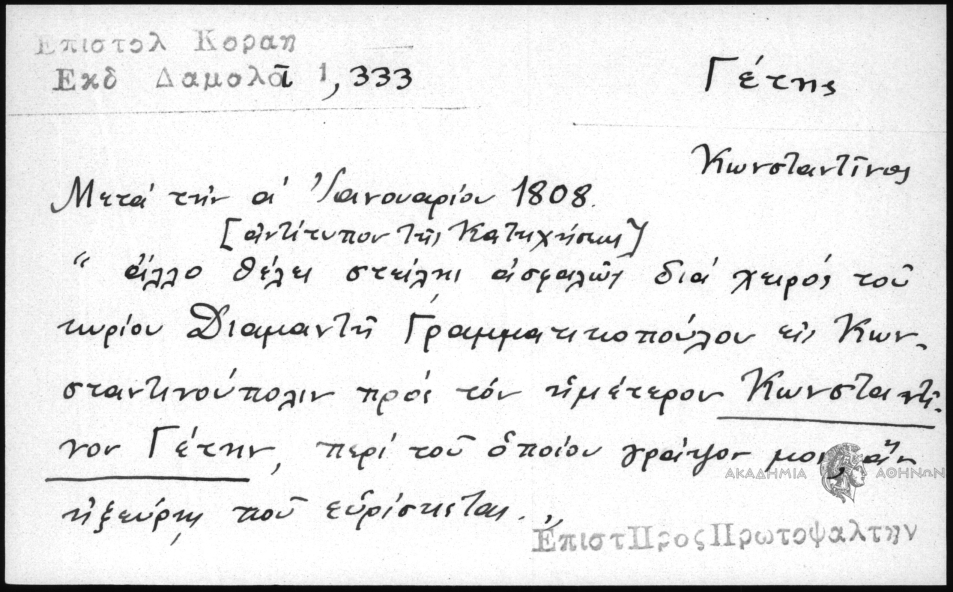 Επιστολ Κοραη
Εκδ Δαμαλᾶ 1, 333
Γέτης
Κωνσταντῖνος
Μετά τήν α' Ἰανουαρίου 1808.
[ἀντίτυπον τῆς Κατηχήσεως]
“ ἄλλο θέλει στείλῃ ἀσφαλῶς διά χειρός τοῦ
κυρίου Διαμαντῆ Γραμματικοπούλου εἰς Κων-
σταντινούπολιν πρός τόν ἡμέτερον Κωνσταντῖ-
νον Γέτην, περί τοῦ ὁποίου γράψον μοι, ἄν
ἠξεύρῃς ποῦ εὑρίσκεται.”
ΑΚΑΔΗΜΙΑ ΑΘΗΝΩΝ
ΕπιστΠροςΠρωτοψαλτην